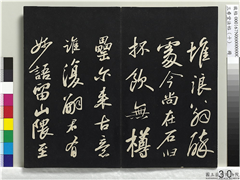 堆浪翁醉
處今尚在石臼
杯飲無樽
罍尔來古意
誰復嗣公有
妙語留山隈至
30